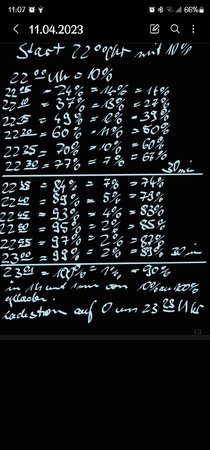 11:07
66%
11.04.2023
Start 22 00 Uhr mit 10%
22 00 Uhr = 10%
22 05 = 24% = 14% = 14%
22 10 = 37% = 13% = 27%
22 15 = 49% = 12% = 39%
22 20 = 60% = 11% = 50%
22 25 = 70% = 10% = 60%
22 30 = 77% = 7% = 67%
30 min
22 35 = 84% = 7% = 74%
22 40 = 89% = 5% = 79%
22 45 = 93% = 4% = 83%
22 50 = 95% = 2% = 85%
22 55 = 97% = 2% = 87%
23 00 = 99% = 2% = 89% 30 min
23 01 = 100% = 1% = 90%
in 1h und 1 min von 10% auf 100%
geladen.
Ladestrom auf 0 um 23 23 Uhr
1/2